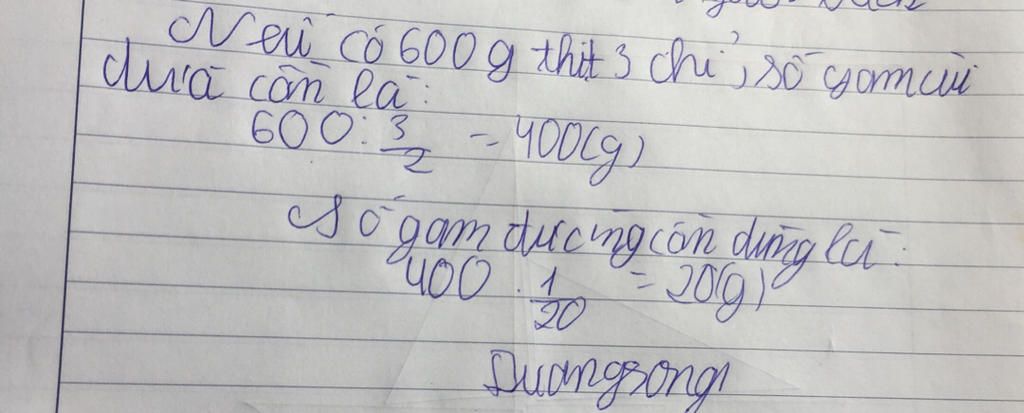 Nếu có 600g thịt 3 chỉ, số gam cùi
dừa cần là:
600 : 3/2 = 400(g)
Số gam đường cần dùng là:
400 . 1/20 = 20(g)
Duangsong